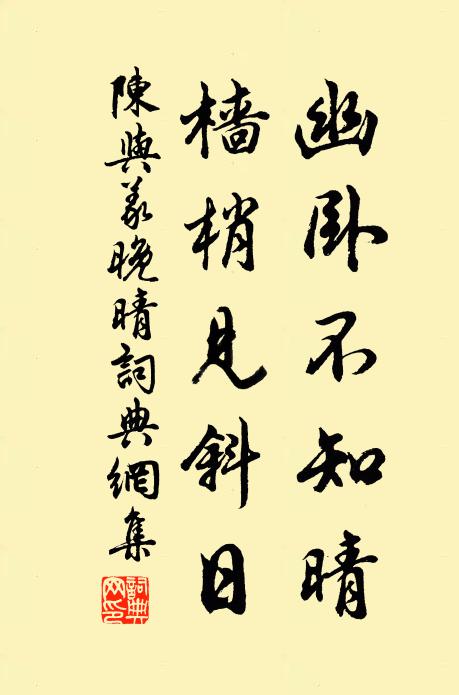 幽卧不知晴
檣梢見斜日
陳與義晚晴詞典網集
詞典網印